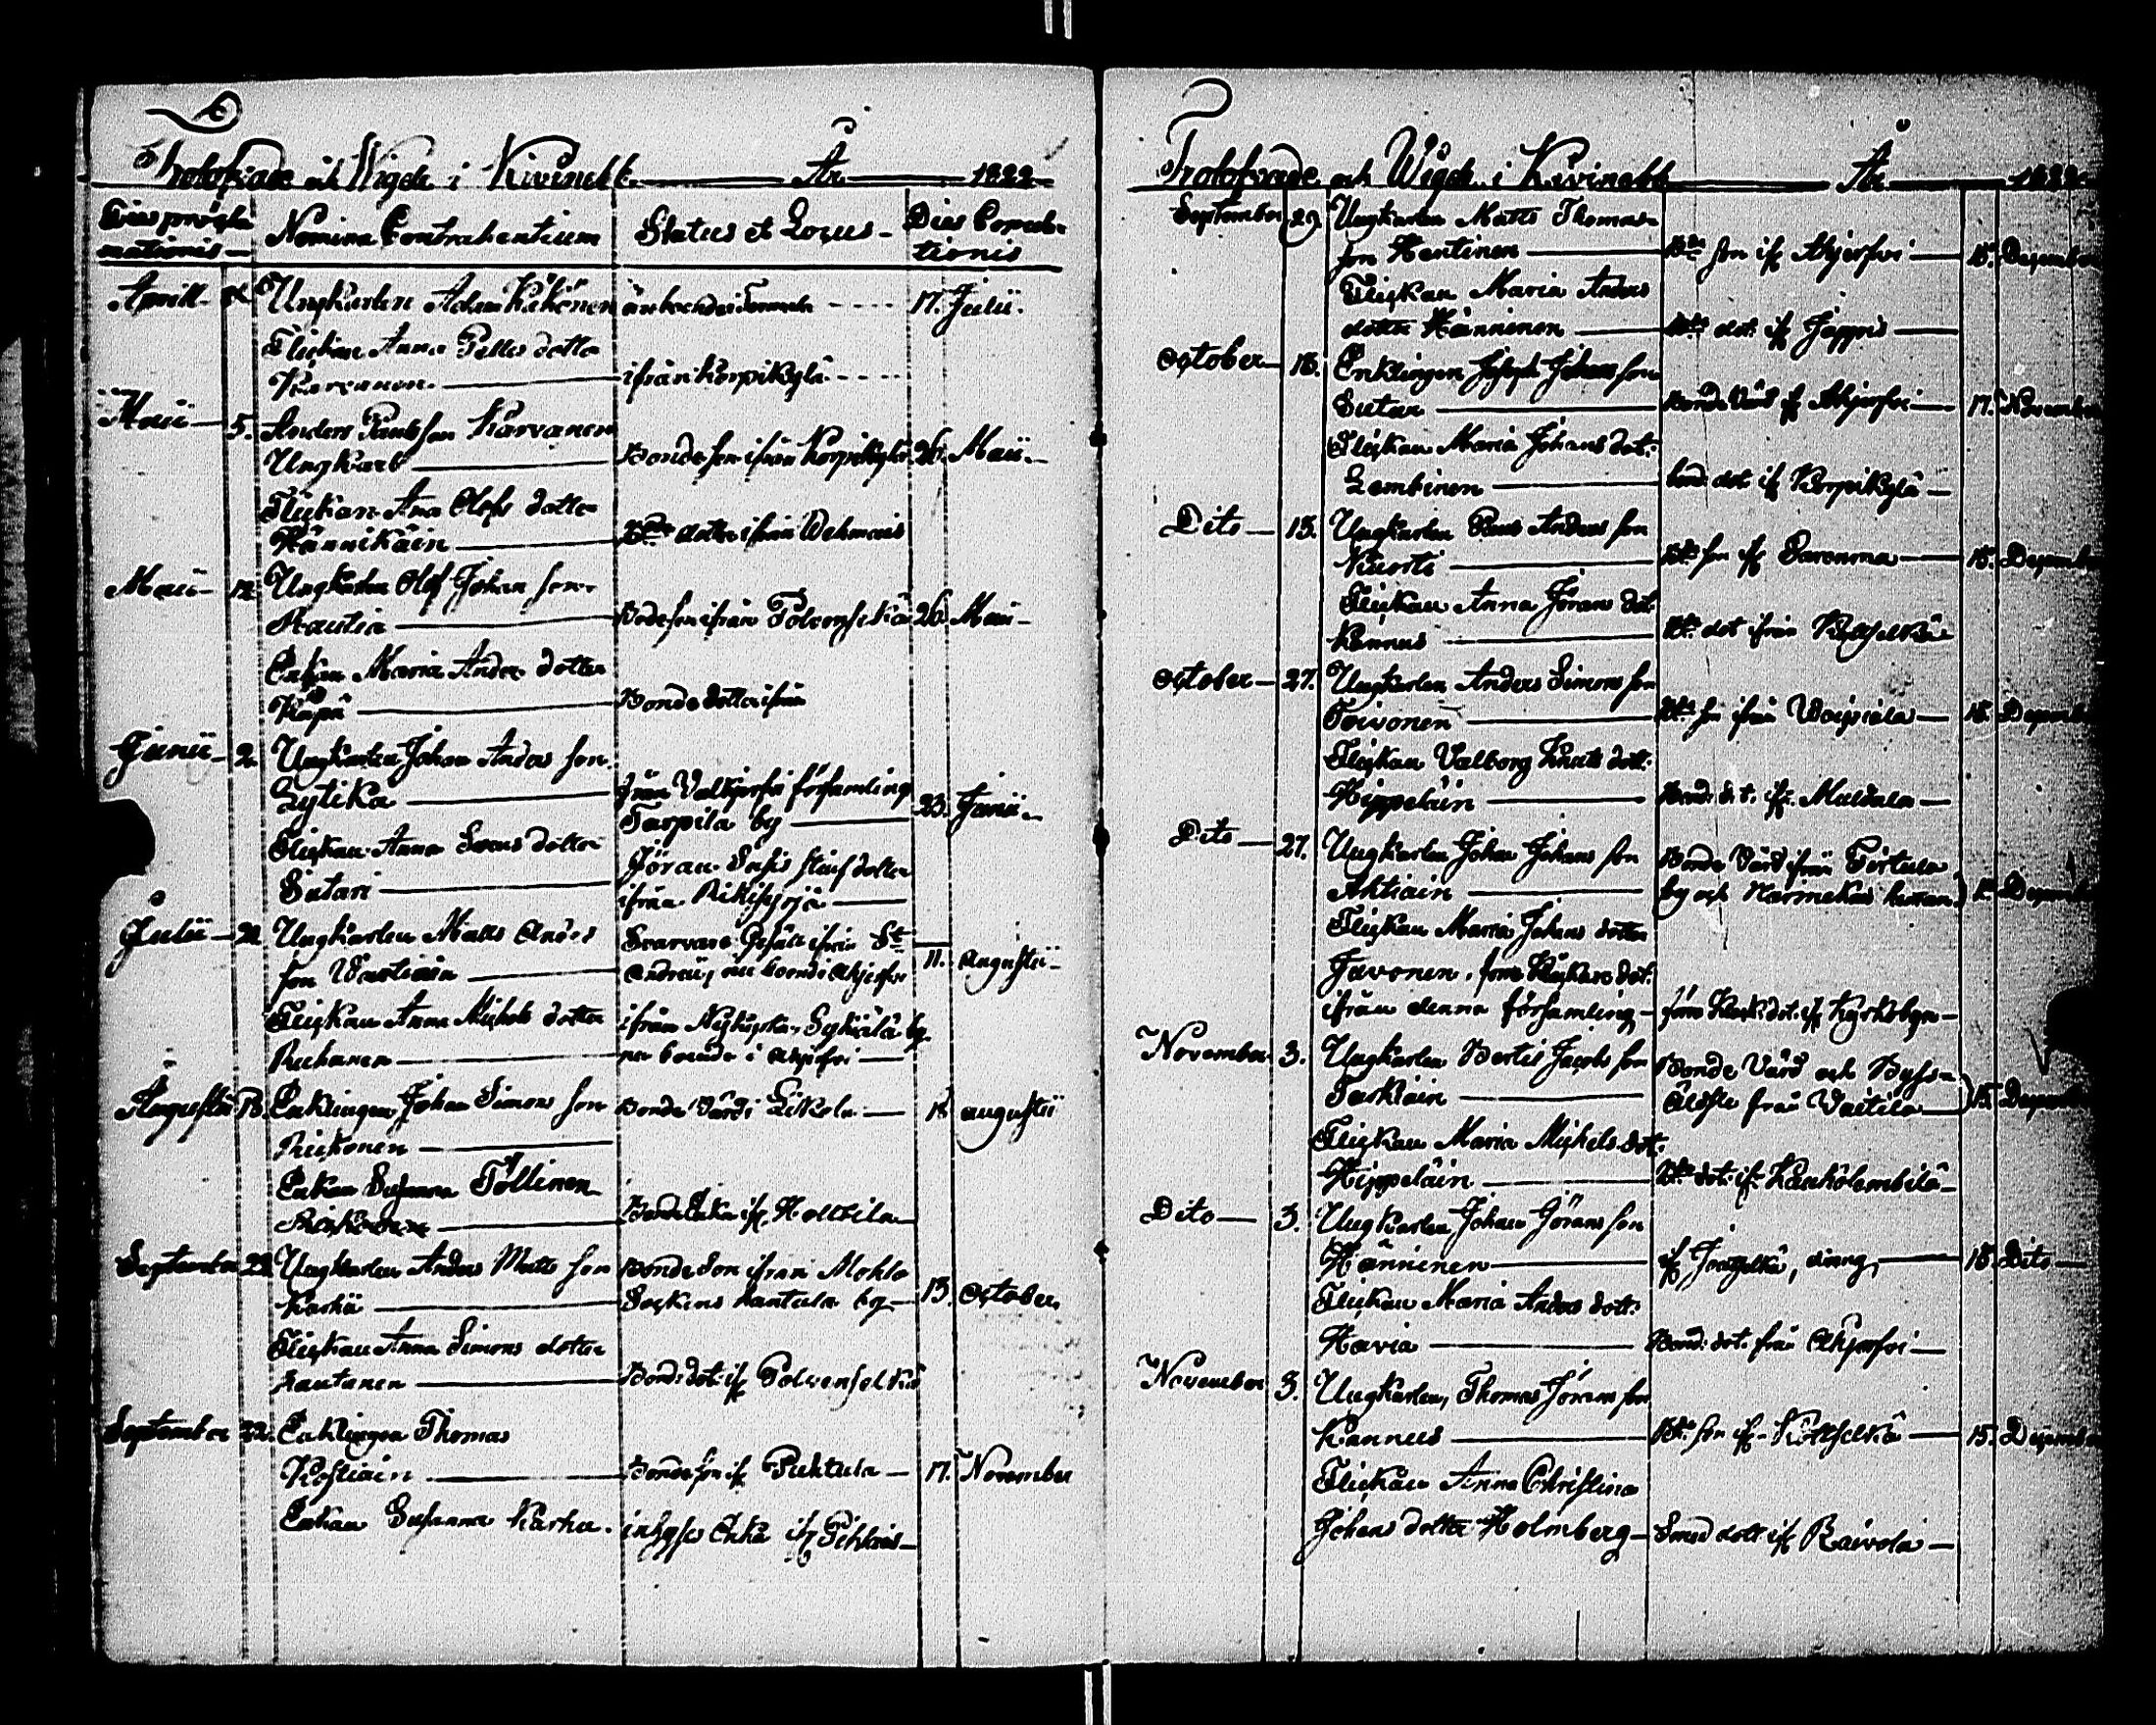 Trolofvade och Wigde i Kivinebb År 1822
Dies procla- Nomina Contrahentium Status et Locus Dies Copula-
mationis tionis
Aprill Ungkarlen Adam Kähönen 17. Julii.
Flickan Anna Petters dotter
Karvanen. ifrån Korpikylä
Maii 5. Anders Pauls son Karvanen
Ungkarl Bonde son ifrån Korpikylä 26. Maii.
Flickan Anna Olofs dotter
Hännikäin dotter ifrån Wehmais
Maii 12 Ungkarlen Olof Johan son
Rautia Bonde son ifrån Polvenselkä 26. Maii
Enkan Maria Anders dotter
Käpä Bonde dotter ifrån
Junii 2. Ungkarlen Johan Anders son
Lytikä från Valkjerfvi församling
Tarpila by 23. Junii.
Flickan Anna Svens dotter
Sutari Jöran dotter
ifrån Rikisyrjä
Julii Ungkarlen Matts Anders Svarvare Gesäll ifrån St
son Wastiain Andreæ, nu boende i Akjerfvi 11. Augustii
Flickan Anna Michels dotter ifrån Nykyrka, by
nu boende i Akjerfvi
Augustii 18. Enklingen Johan Simons son Bonde Värd i Liikola 18 augustii
Riikonen
Enkan Susanna Pöllinen
Bonde Enka if. Holttila
September 22. Ungkarlen Anders Matts son Bonde Son ifrån Mohla
Karhu Sockens Kantula by 13. October
Flickan Anna Simons dotter
Rautanen Bond: dot: if. Polvenselkä
September 22. Enklingen Thomas
Kostiain Bonde son if. Puhtula 17. November
Enkan Susanna Karhu. inhyses Enka if.
Trolofvade och Wigde i Kivinebb År 1822
September 29. Ungkarlen Matts Thomas-
son Hentinen son if. Akjerfvi 15. December
Flickan Maria Anders
dotter Hänninen dot. if. Jäppi
October 13. Enklingen Joseph Johans son
Sutar Bonde Värd if Akjerfvi 17. November
Flickan Maria Johans dot:
Lembinen bond. dot. if Korpikylä
Dito 13. Ungkarlen Paul Anders son
Kuorti son if 15. December
Flickan Anna Jörans dot:
Kannus dot ifrån Költselkä
October 27. Ungkarlen Anders Simons son
Toivonen son ifrån 15. December
Flickan Valborg Knuts dott:
Hippeläin Bond. dot. ifr. Multala
Dito 27. Ungkarlen Johan Johans son Bonde Värd ifrån Tirtula
Ahtiain by och 15. December
Flickan Maria Johans dotter
Javonen, före Klockare dot.
ifrån denna församling före Klock: dot. if Kyrkobyn
November 3. Ungkarlen Bertil Jacobs son Bonde Värd och Byss-
Tarkiain Äldste från Vaitila 15. December
Flickan Maria Michels dot.
Hippeläin dot. if. Kauhölambilä
Dito 3. Ungkarlen Johan Jörans son
Hänninen if Joutselkä, dräng, 15. Dito
Flickan Maria Anders dott:
Havia Bond. dot. från Akjerfvi
November 3. Ungkarlen, Thomas Jörans son
Kannus son if. Költselkä 15. December
Flickan Anna Christina
Johans dotter Holmberg Smed dott if Raivola